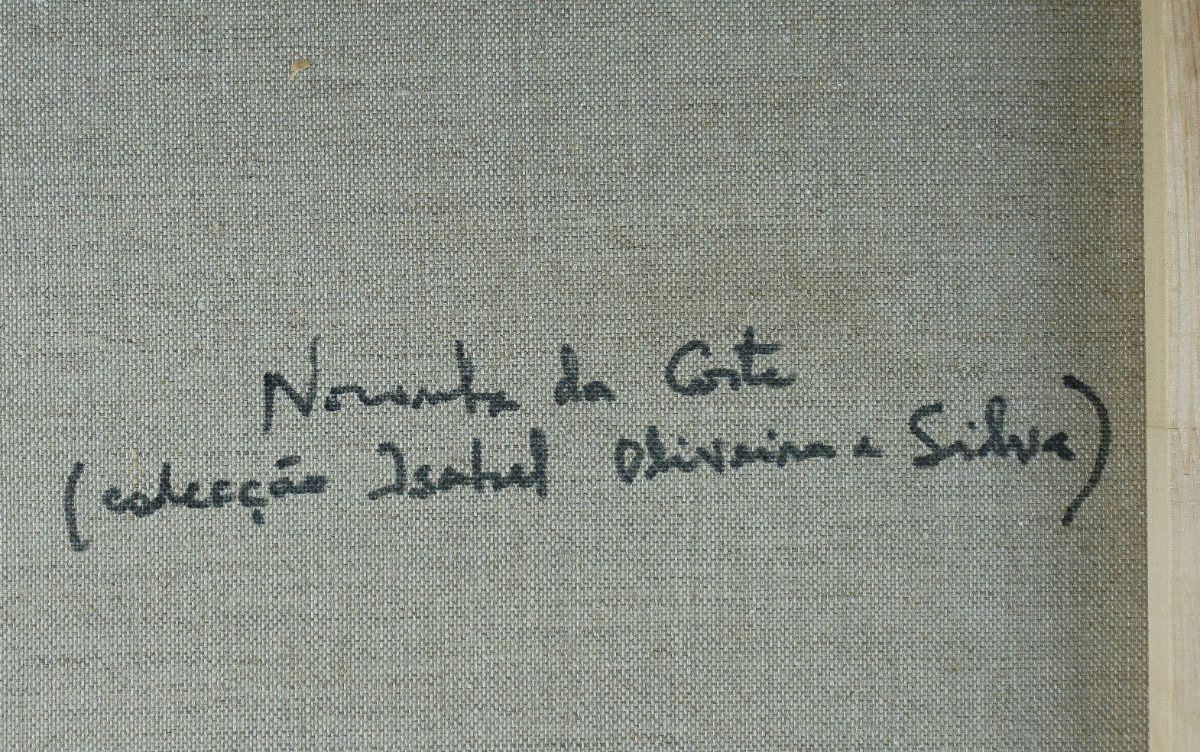 Noronha da Costa
(colecção Isabel Oliveira e Silva)